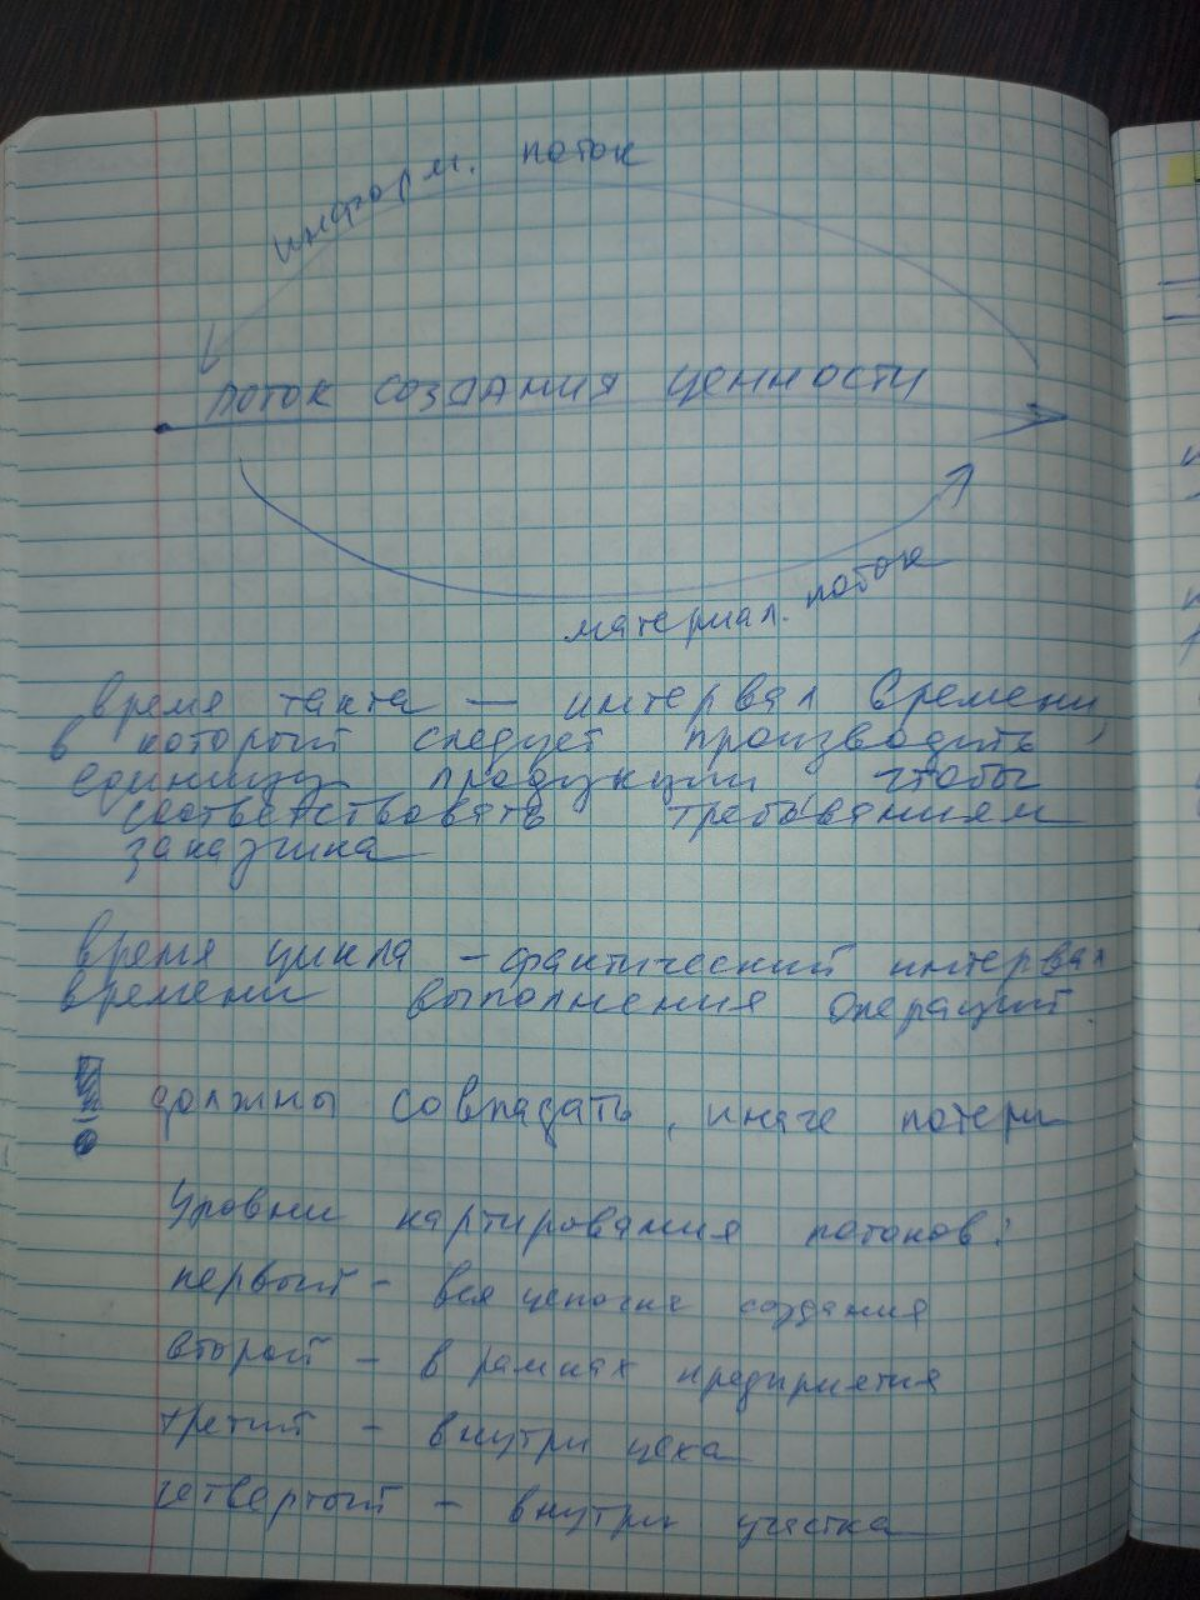 информ. поток
поток создания ценности
материал. поток
время такта — интервал времени,
в который следует производить
единицу продукции чтобы
соответствовать требованиям
заказчика
время цикла – фактический интервал
времени выполнения операций
! должны совпадать, иначе потери
Уровни картирования потоков:
первый – вся цепочка создания
второй – в рамках предприятия
третий – внутри цеха
четвертый – внутри участка